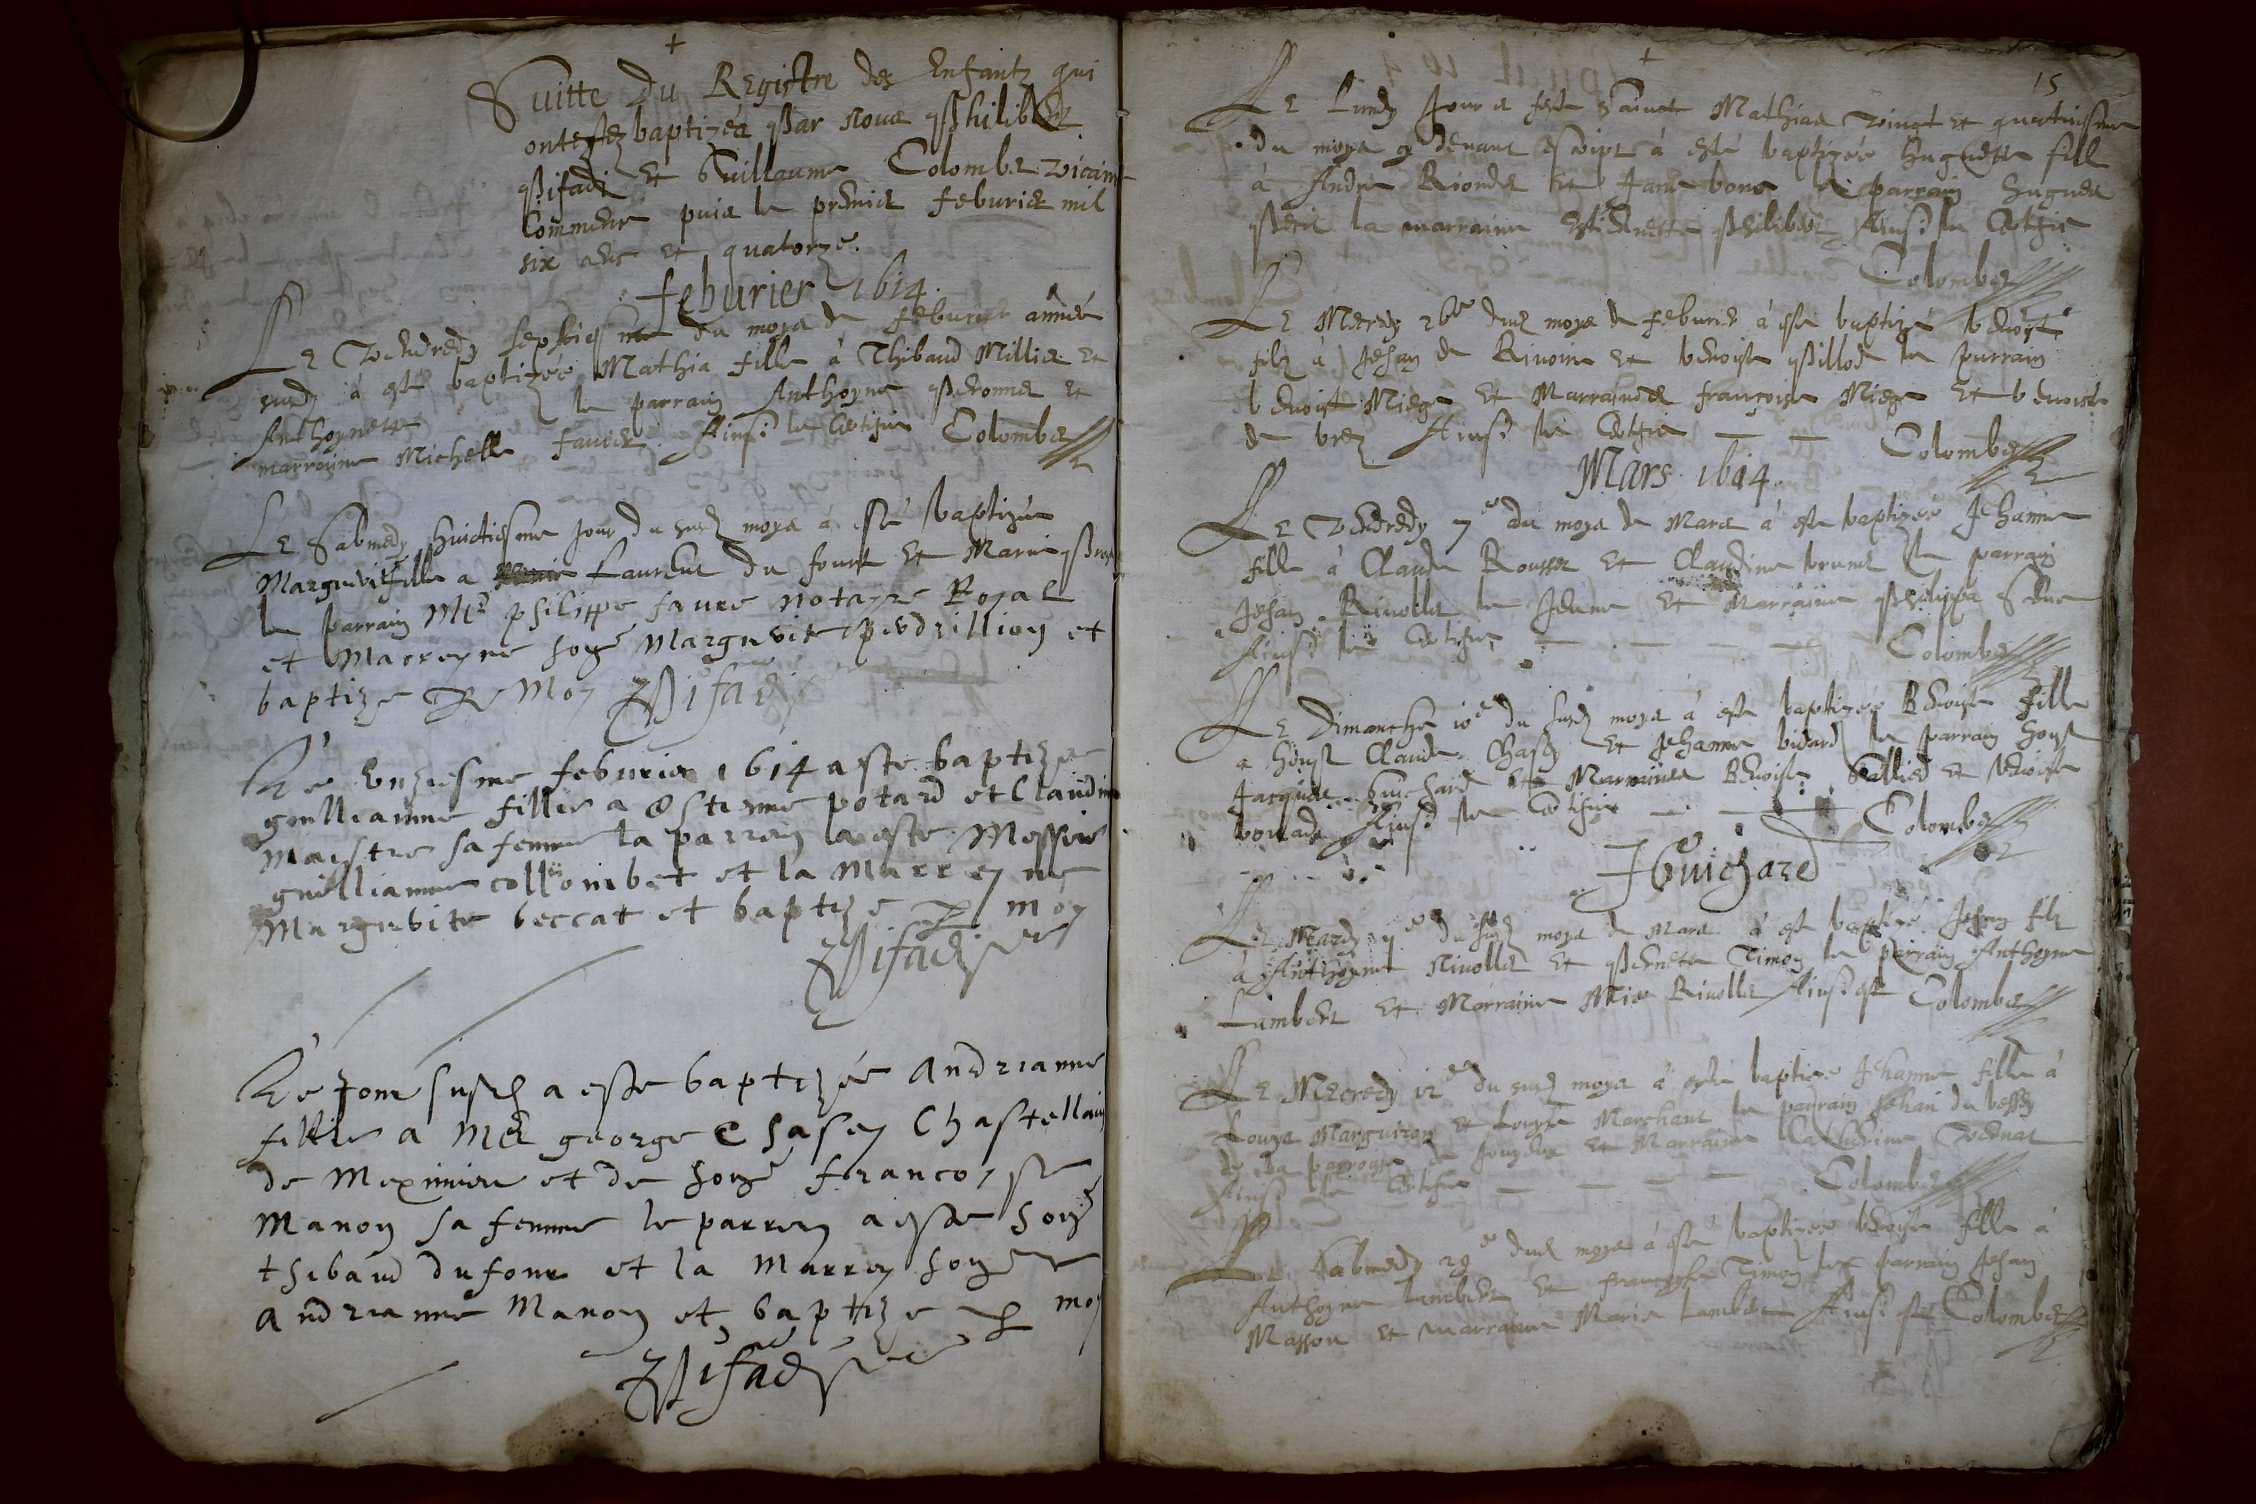 +
Suitte du Registre des Enfantz qui
ont estez baptizés par nous Philibert
Pisadi et Guillaume Colombet vicaire
Commence puis le premier feburier mil
six cens et quatorze.
feburier 1614.
Le Vendredy septiesme du moys de feburier année
susd à esté baptizée Mathia fille à Thibaud Millier et
Anthoynette le parrain Anthoyne et
marraine Michelle Favier Ainsi le Certifie Colombet
Le Sabmedy huictiesme jour du susd moys à esté baptizée
Marguerite fille a Laurent du fourt et Marie
le parrain Mre philippe faure notayre Royal
et Marreyne hone Marguerite pendrillion et
baptize p moy Pisadi
Le Unziesme feburier 1614 a este baptizee
guilliamme fillie a Estienne potard et Claudine
Maistre sa femme la parrein a este Messire
guilliamme collombet et la Marreyne
Marguerite beccat et baptize p moy
Pisadi
Le Jour susd a este baptizée andrianne
fillie a Mre george Chasey Chastellain
de Meximieu et de hone francoyse
Manon sa femme le parrein a este hone
thibaud dufour et la Marrey hone
andrianne Manon et baptize p moy
Pisadi
+
15
Le Lundy Jour e feste Sainct Mathias vingt et quatriesme
du moys devant escript à esté baptizée Huguette fille
à André Riondet et Jane bone le parrain Hugues
la marraine Estiennette Philibert Ainsi le Certifie
Colombet
Le Mercredy 26e dud moys de feburier à esté baptizé benoist
filz à Jehan de Rivoire et benoiste le parrain
benoist Miege et Marraines françoise Miege et benoiste
de brez Ainsi le Certifie Colombet
Mars 1614.
Le Vendredy 7e du moys de Mars à esté baptizée Jehanne
fille à Claude Rousset et Claudine brunet le parrain
Jehan Rivollet le Jeune et Marraine Philippa
Ainsi le Certifie Colombet
Le Dimanche 10e du susd moys à esté baptizée Benoiste fille
a honste Claude Chasey et Jehanne bidard le parrain honste
Jacques Guichard et Marraines Benoiste et benoiste
Ainsi le Certifie Colombet
J Guichard
Le Mardy du susd moys de Mars à esté baptizé Jehan filz
à Anthoyne Rivollet et Pernete Timon le parrain Anthoyne
Lambert et Marraine Mie Rivollet Ainsi est Colombet
Le Mecredy 12e du susd moys à esté baptizée Jehanne fille à
Louys Marguiron et Louyse Marchant le parrain Jehan du bessey
de la paroisse de et Marraine Catherine
Ainsi le Certifie Colombet
Le Sabmedy 29e dud moys à esté baptizée benoiste fille à
Anthoyne Lambert et françoyse Timon le parrain Jehan
Masson et marraine Marie Lambert Ainsi est Colombet